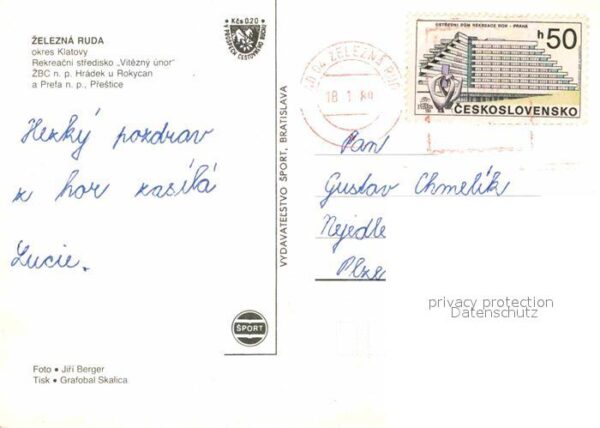 ŽELEZNÁ RUDA
okres Klatovy
Rekreační středisko „Vítězný únor"
ŽBC n. p. Hrádek u Rokycan
a Prefa n. p., Přeštice
Kčs 0,20
PROSPĚCH CESTOVNÍHO RUCHU
ŽELEZNÁ RUDA
18 1 89
ODBORÁŘSKÝ DŮM REKREACE ROH - PRAHA
h50
ČESKOSLOVENSKO
Hezký pozdrav
z hor zasílá
Lucie.
VYDAVATEĽSTVO ŠPORT, BRATISLAVA
ŠPORT
Pan
Gustav Chmelík
Nejedle
Plze
privacy protection
Datenschutz
Foto • Jiří Berger
Tisk • Grafobal Skalica